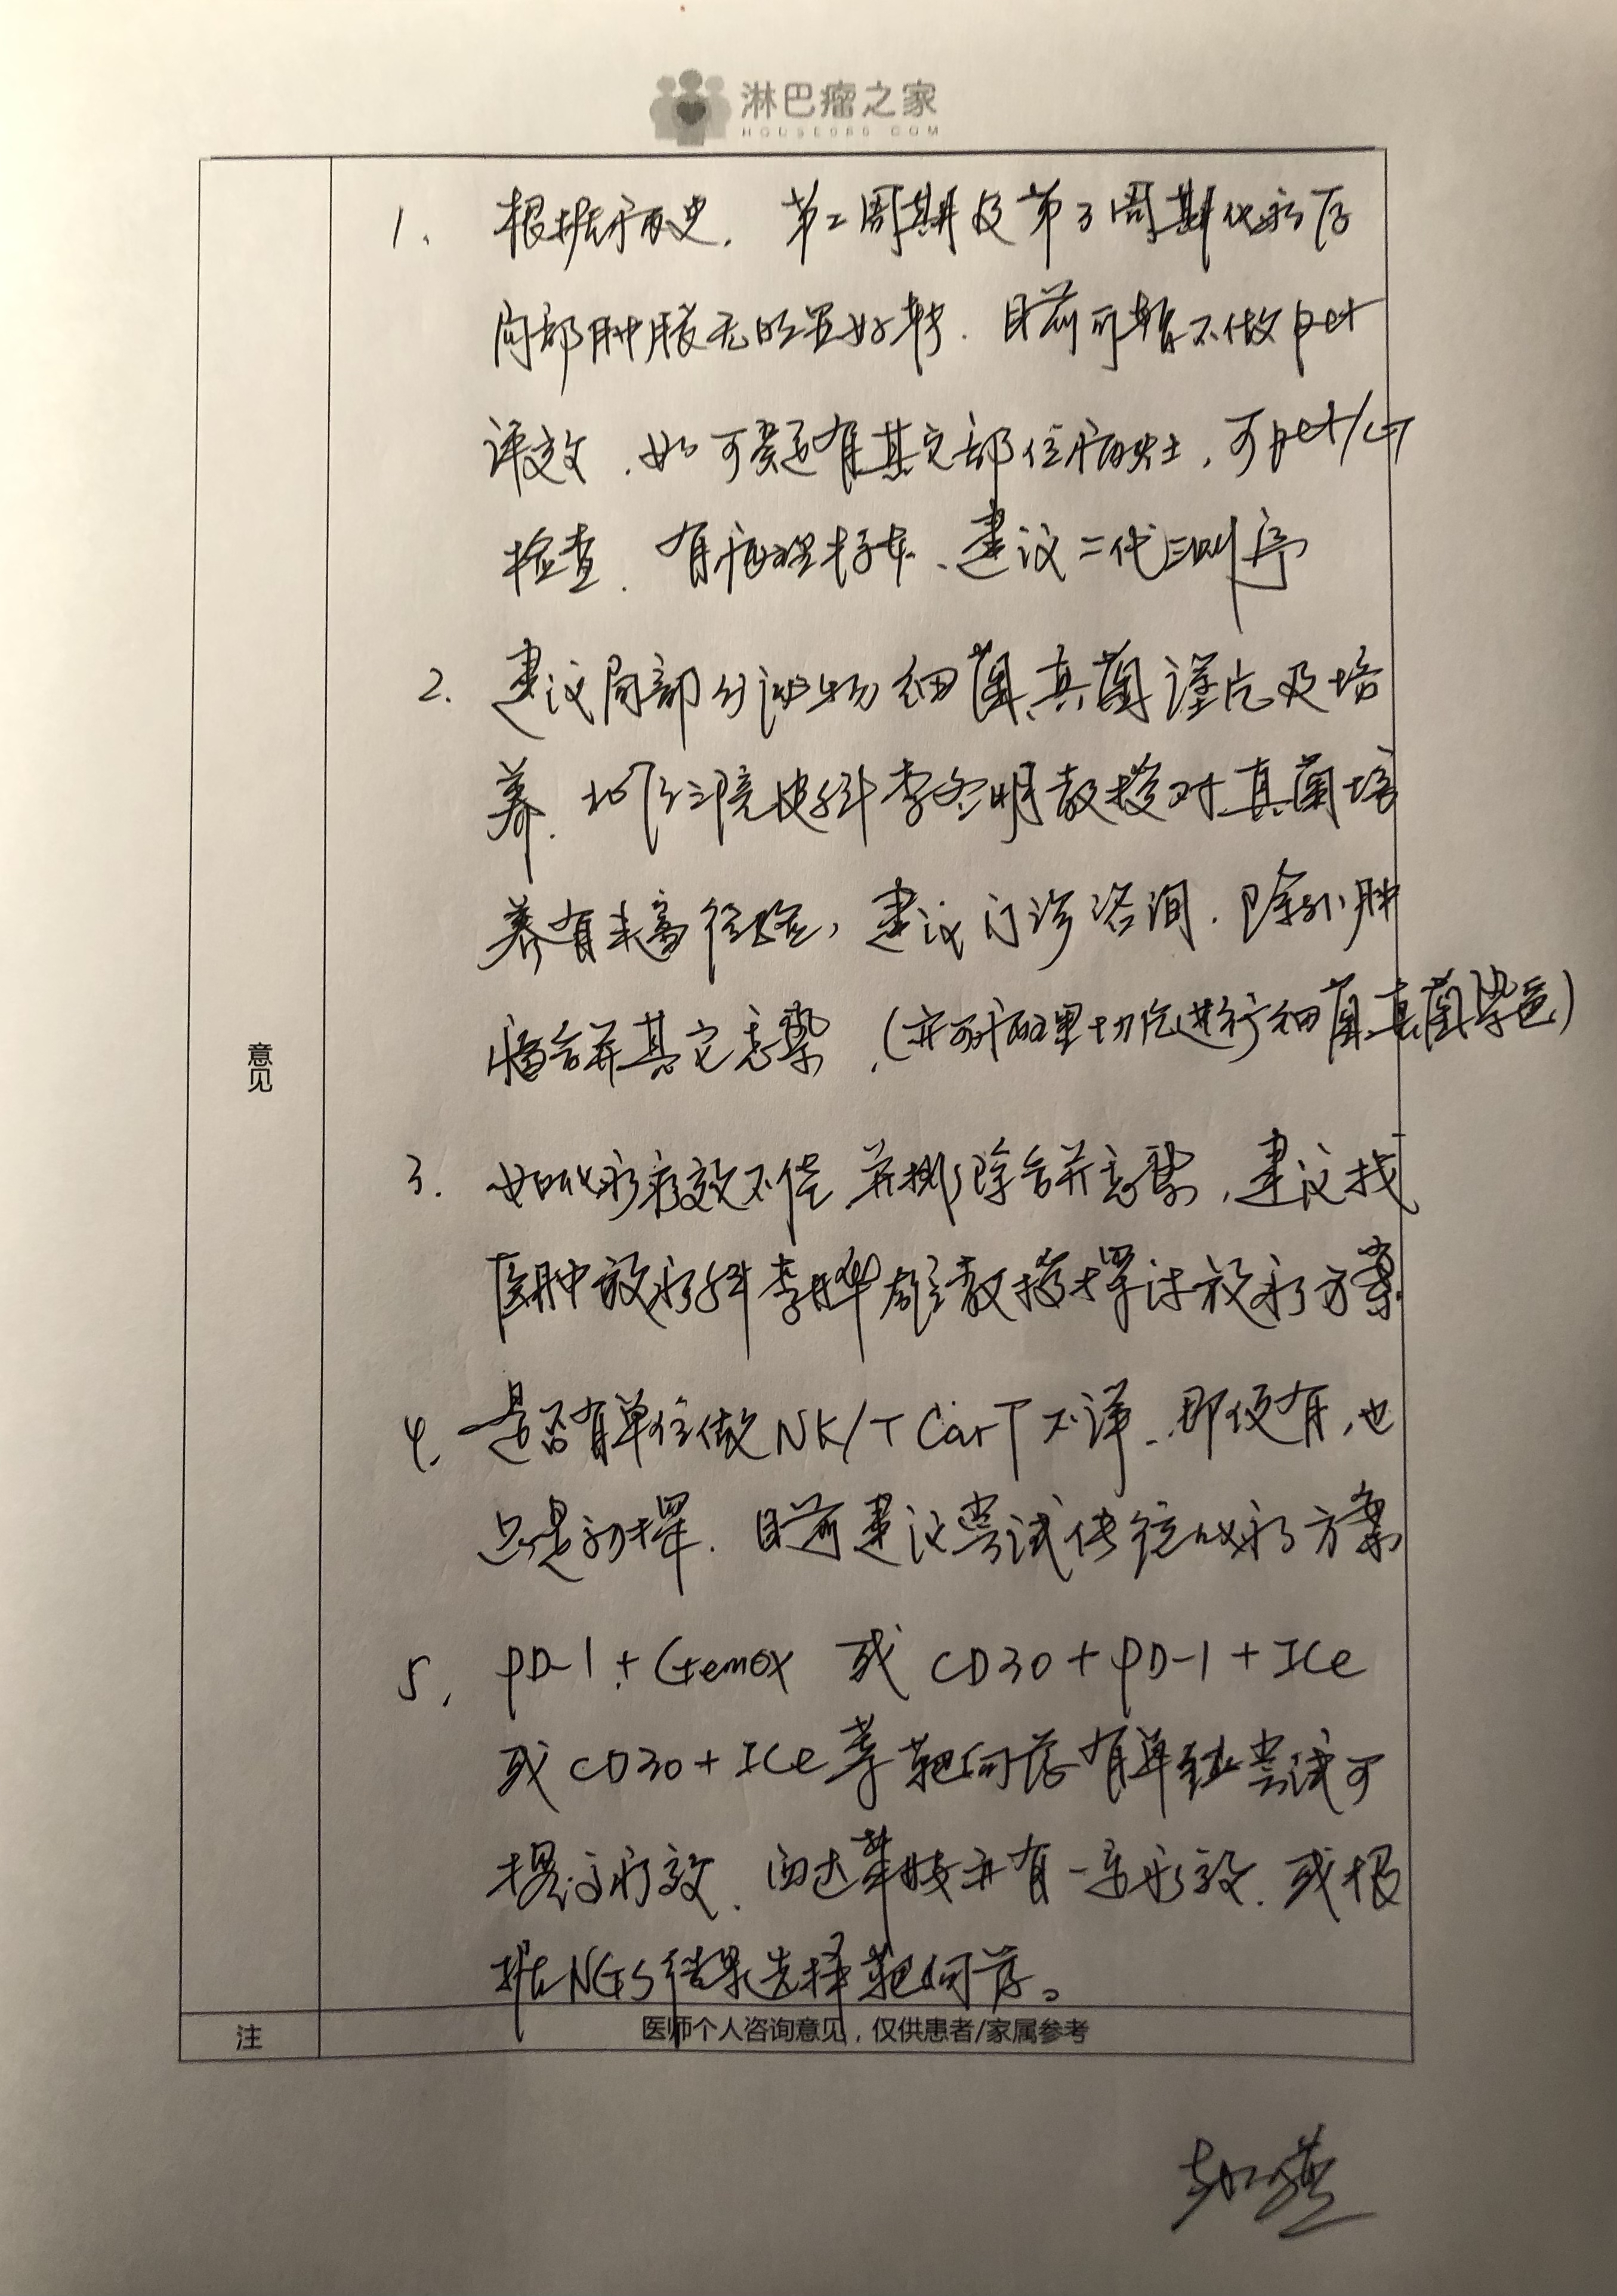 淋巴瘤之家
HOUSE086.COM
1、根据病史，第二周期及第3周期化疗后
局部肿胀无明显好转．目前可暂不做pet
评效．如可疑有其它部位病灶，可pet/CT
检查．有病理标本、建议二代测序
2．建议局部分泌物细菌、真菌涂片及培
养．北医三院皮科李冬明教授对真菌培
养有丰富经验，建议门诊咨询．除外肿
瘤合并其它感染．（亦可病理切片进行细菌、真菌染色）
3．如化疗疗效不佳．并排除合并感染，建议找
医肿放疗科李晔雄教授探讨放疗方案．
4、是否有单位做NK/T CarT不详．即便有，也
只是初探．目前建议尝试传统化疗方案
5、PD-1+Gemox 或 CD30+PD-1+ICe
或CD30+ICe等靶向药有单药尝试可
提高疗效．西达苯胺亦有一定疗效．或根
据NGS结果选择靶向药。
意见
注
医师个人咨询意见，仅供患者/家属参考